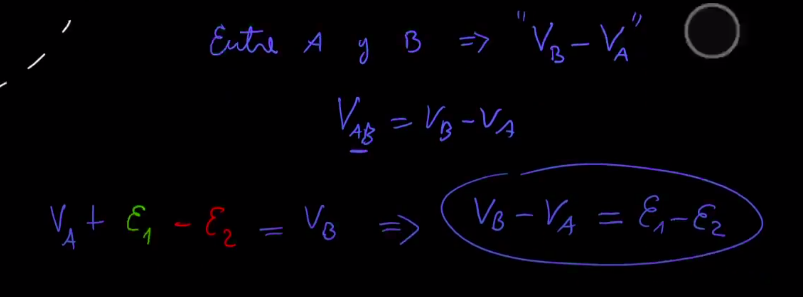 Entre A y B => "V_B - V_A"
V_AB = V_B - V_A
V_A + ℰ_1 - ℰ_2 = V_B => V_B - V_A = ℰ_1 - ℰ_2